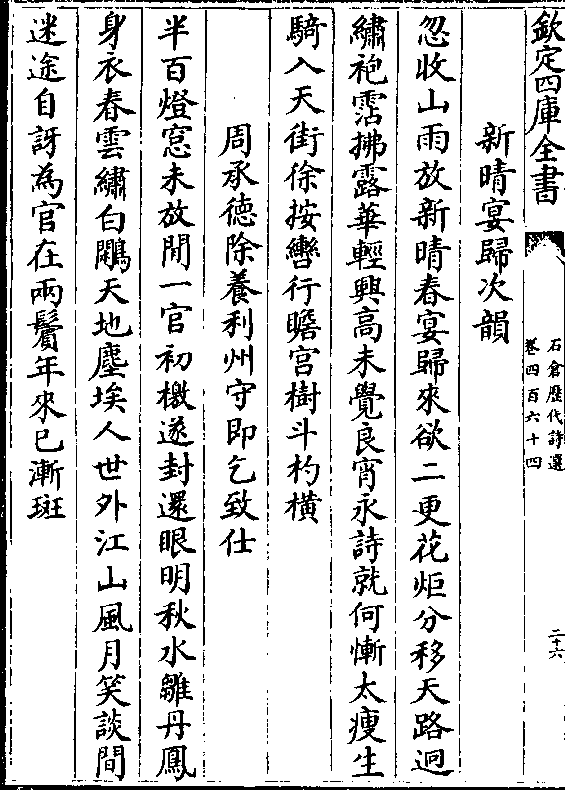 欽定四庫全書
石倉歷代詩選
卷四百六十四
二十六
新晴宴歸次韻
忽收山雨放新晴春宴歸來欲二更花炬分移天路迥
繡袍霑拂露華輕興高未覺良宵永詩就何慚太瘦生
騎入天街徐按轡行瞻宮樹斗杓橫
周承德除養利州守即乞致仕
半百燈窓未放閒一官初檄遂封還眼明秋水雛丹鳳
身衣春雲繡白鷴天地塵埃人世外江山風月笑談間
迷途自訝為官在兩鬢年來已漸斑